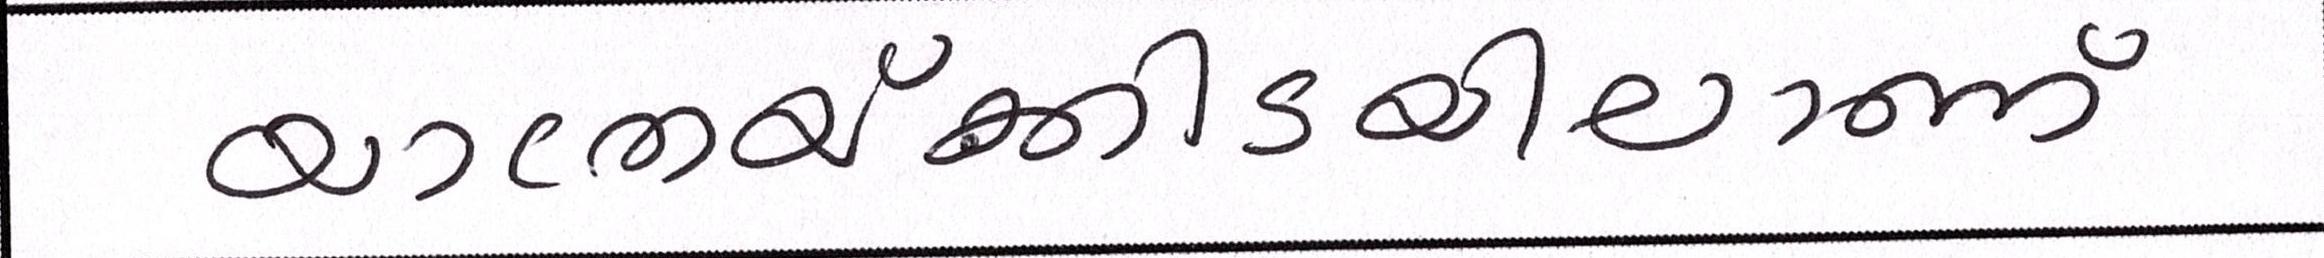 യാത്രയ്ക്കിടയിലാണ്